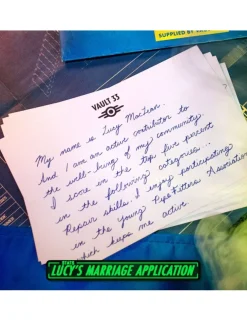 SUPPLIED BY
VAULT 33
My name is Lucy MacLean...
And I am an active contributor to
the well-being of my community.
I score in the top five percent
in the following categories...
Repair skills. I enjoy participating
in the Young Pip-Fitters Association
which keeps me active.
LUCY'S MARRIAGE APPLICATION